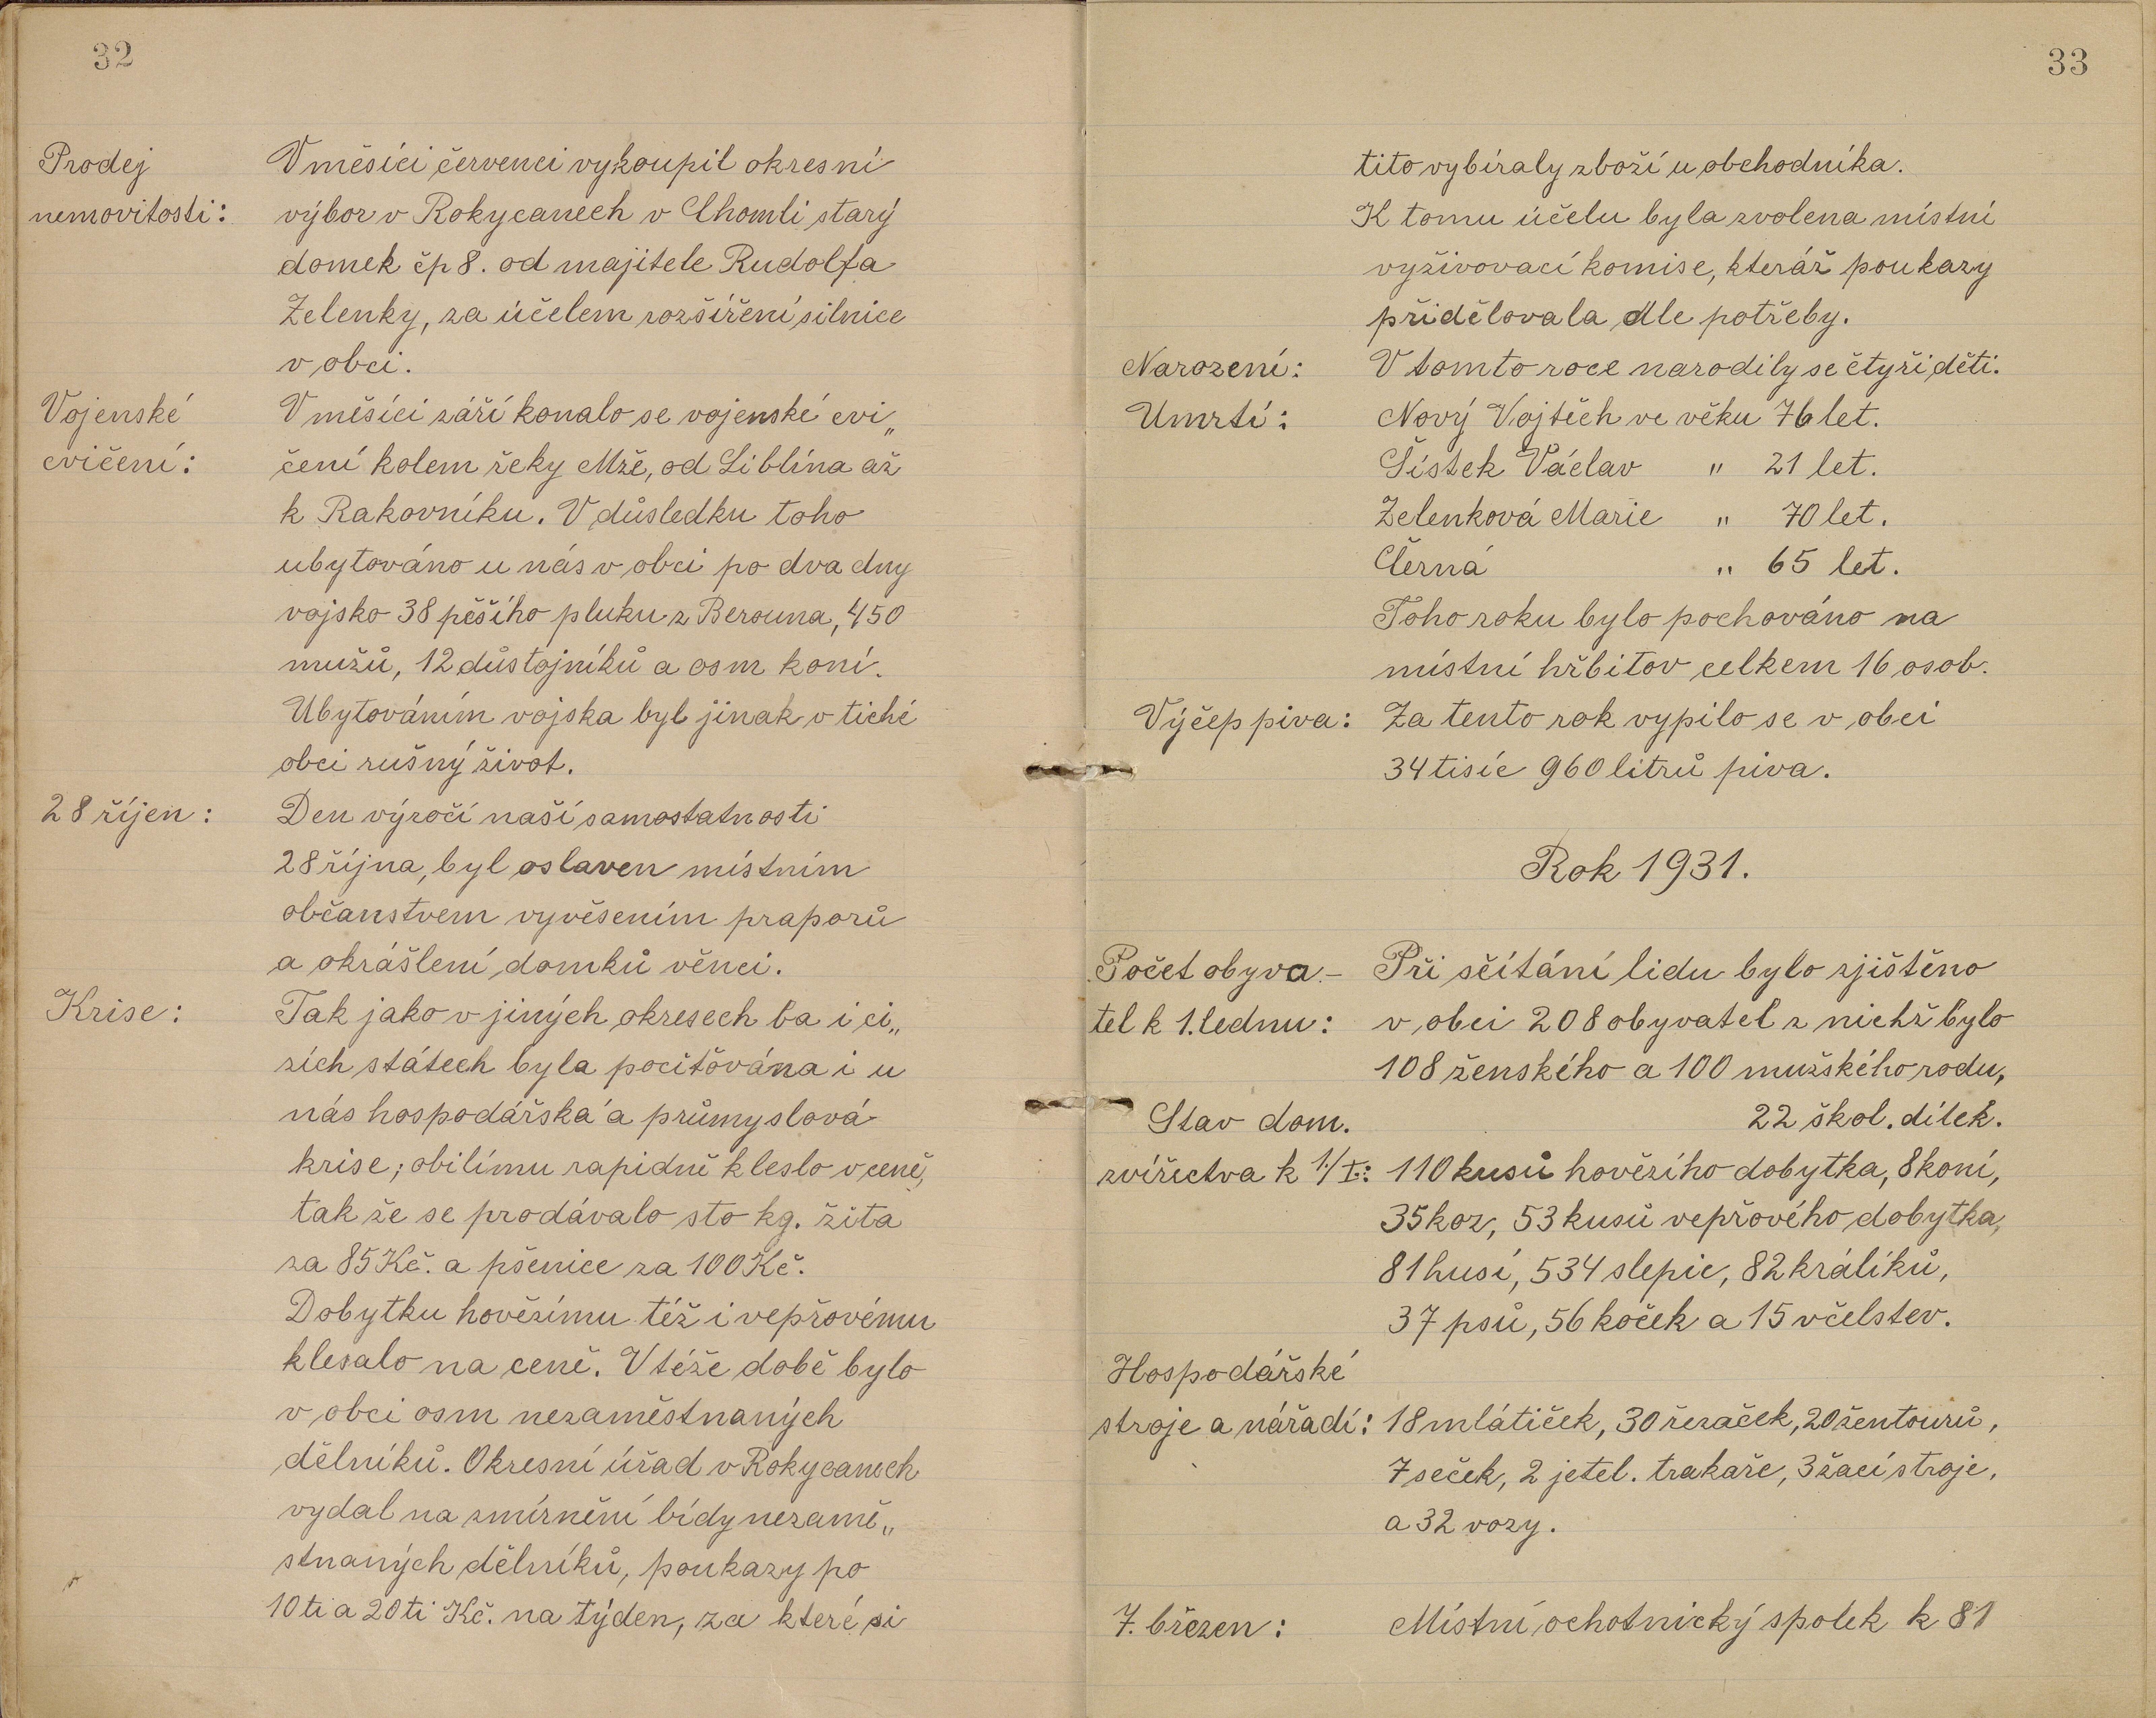 32
Prodej
nemovitosti:
V měsíci červenci vykoupil okresní
výbor v Rokycanech v Chomli starý
domek čp 8. od majitele Rudolfa
Zelenky, za účelem rozšíření silnice
v obci.
Vojenské
cvičení:
V měsíci září konalo se vojenské cvi„
čení kolem řeky Mže, od Liblína až
k Rakovníku. V důsledku toho
ubytováno u nás v obci po dva dny
vojsko 38 pěšího pluku z Berouna, 450
mužů, 12 důstojníků a osm koní.
Ubytováním vojska byl jinak v tiché
obci rušný život.
28 říjen:
Den výročí naší samostatnosti
28 října, byl oslaven místním
občanstvem vyvěsením praporů
a okrášlení domků věnci.
Krise:
Tak jako v jiných okresech ba i ci„
zích státech byla pociťována i u
nás hospodářská a průmyslová
krise; obilímu rapidně kleslo v ceně,
tak že se prodávalo sto kg. žita
za 85 Kč. a pšenice za 100 Kč.
Dobytku hovězímu též i vepřovému
klesalo na ceně. V téže době bylo
v obci osm nezaměstnaných
dělníků. Okresní úřad v Rokycanech
vydal na zmírnění bídy nezamě„
stnaných dělníků, poukazy po
10 ti a 20 ti Kč. na týden, za které si
33
tito vybíraly zboží u obchodníka.
K tomu účelu byla zvolena místní
vyživovací komise, kteráž poukazy
přidělovala dle potřeby.
Narození:
V tomto roce narodily se čtyři děti.
Umrtí:
Nový Vojtěch ve věku 76 let.
Šístek Václav " 21 let.
Zelenková Marie " 70 let.
Černá " 65 let.
Toho roku bylo pochováno na
místní hřbitov celkem 16 osob.
Výčep piva:
Za tento rok vypilo se v obci
34 tisíc 960 litrů piva.
Rok 1931.
Počet obyva-
tel k 1. lednu:
Při sčítání lidu bylo zjištěno
v obci 208 obyvatel z nichž bylo
108 ženského a 100 mužského rodu,
22 škol. dítek.
Stav dom.
zvířectva k 1./I.:
110 kusů hovězího dobytka, 8 koní,
35 koz, 53 kusů vepřového dobytka,
81 husí, 534 slepic, 82 králíků,
37 psů, 56 koček a 15 včelstev.
Hospodářské
stroje a nářadí:
18 mlátiček, 30 řezaček, 20 žentourů,
7 seček, 2 jetel. trakaře, 3 žací stroje,
a 32 vozy.
7. březen:
Místní ochotnický spolek k 81